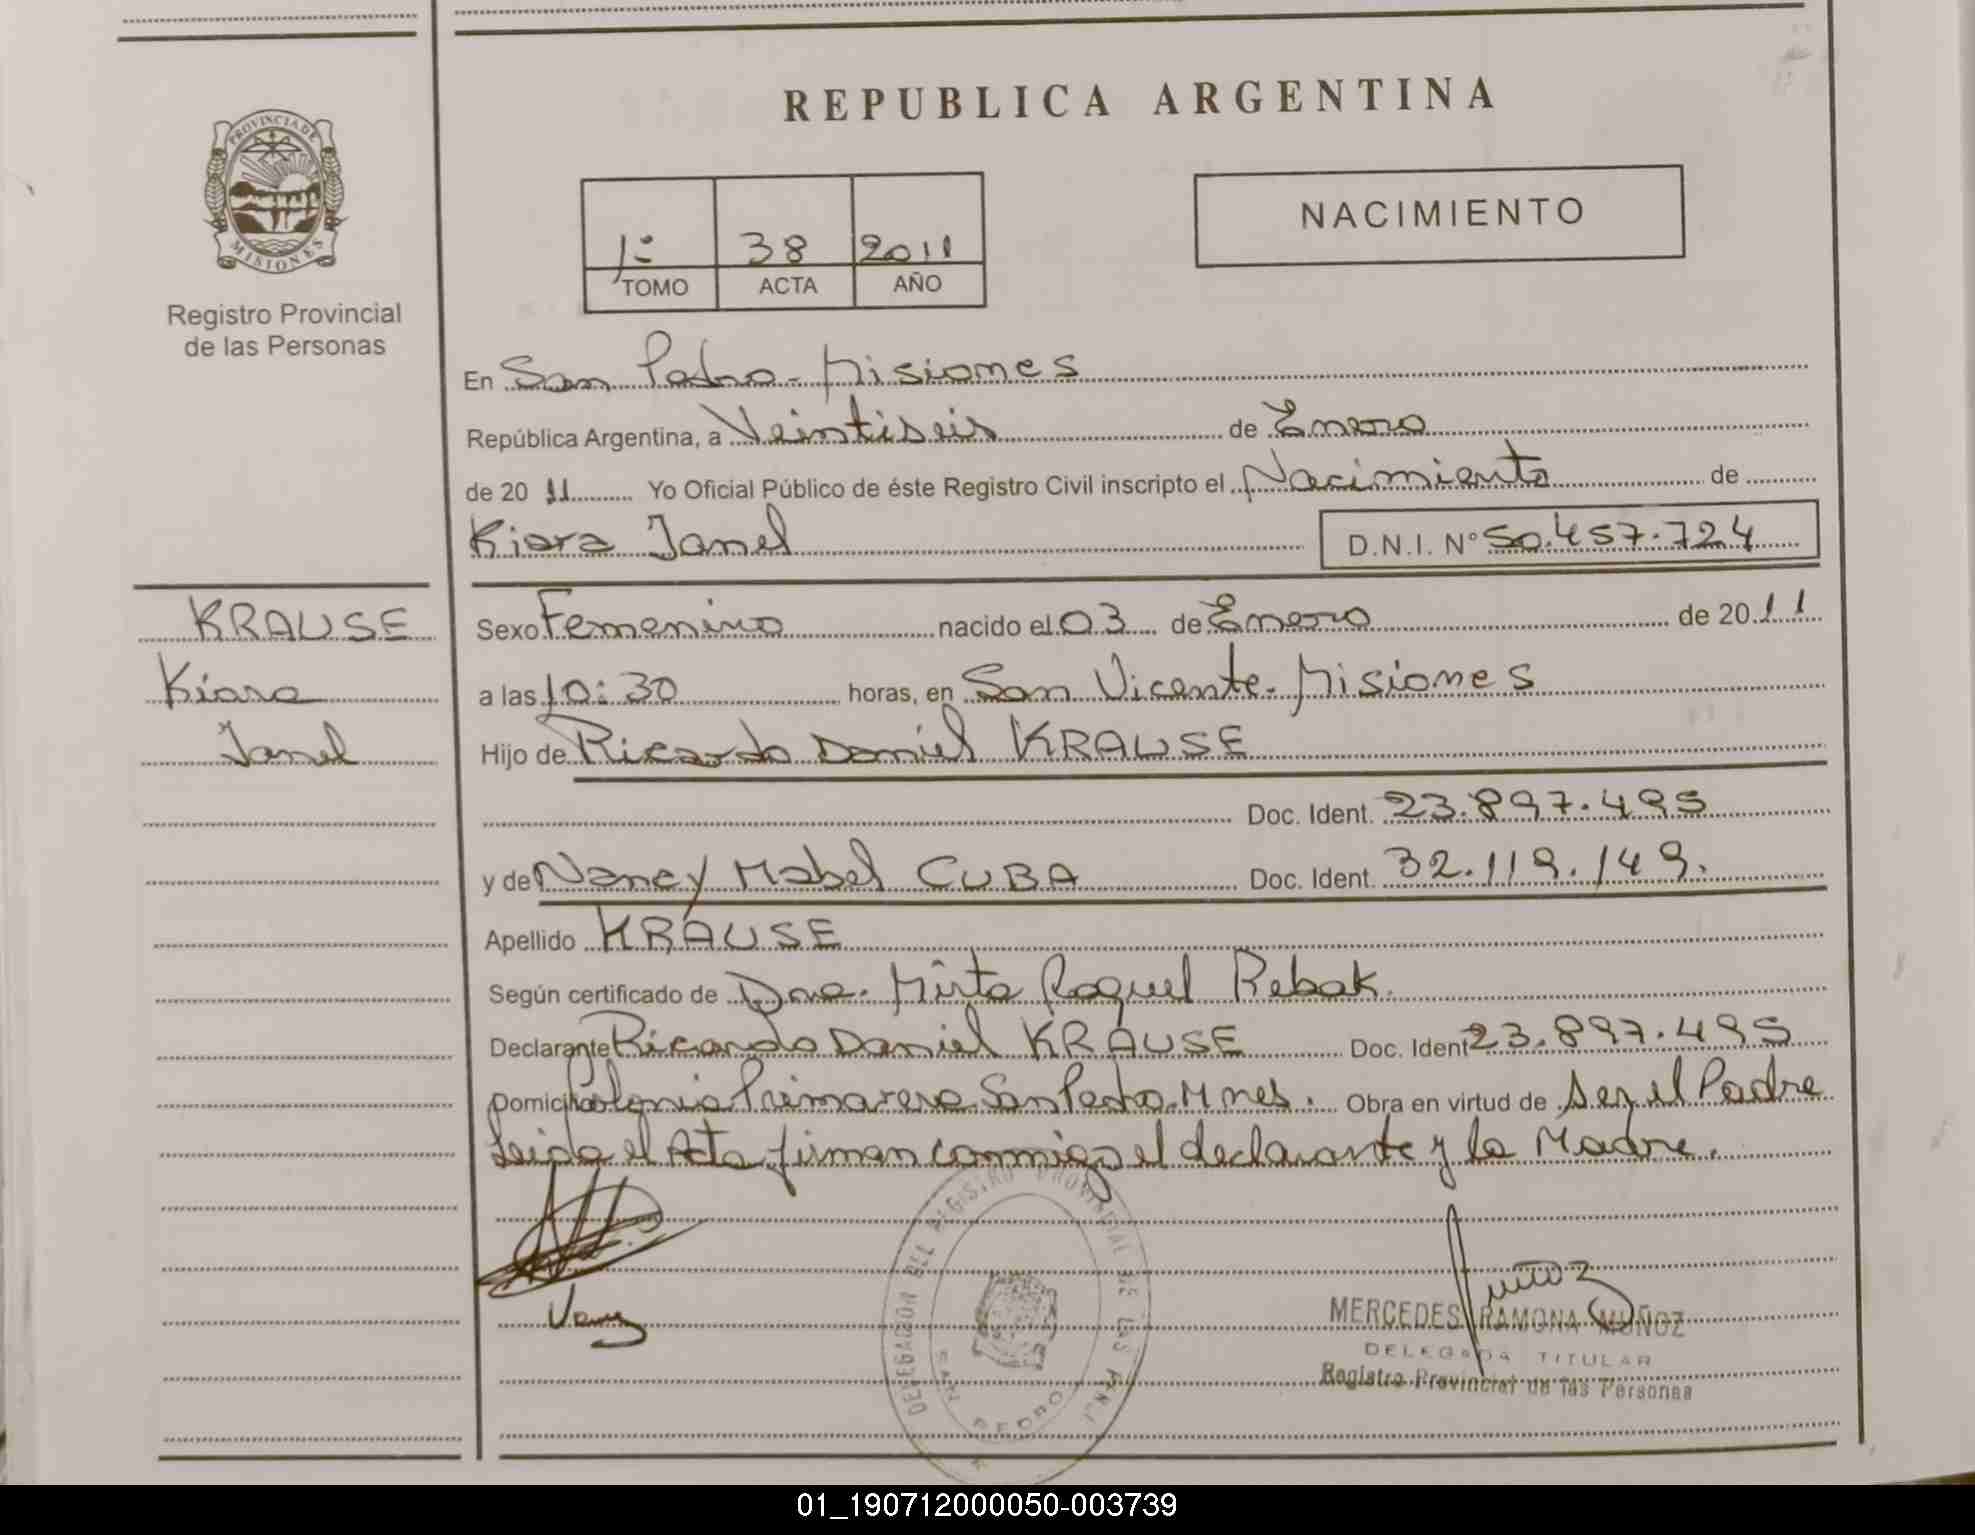 REPUBLICA ARGENTINA
PROVINCIA DE
MISIONES
Registro Provincial
de las Personas
1º 38 2011
TOMO ACTA AÑO
NACIMIENTO
En San Pedro - Misiones
República Argentina, a Veintiseis de Enero
de 20 11 Yo Oficial Público de éste Registro Civil inscripto el Nacimiento de
Kiara Janel D.N.I. Nº 50.457.724
KRAUSE
Kiara
Janel
Sexo Femenino nacido el 03 de Enero de 20 11
a las 10:30 horas, en San Vicente - Misiones
Hijo de Ricardo Daniel KRAUSE
Doc. Ident. 23.897.495
y de Nancy Mabel CUBA Doc. Ident. 32.119.149.
Apellido KRAUSE
Según certificado de Dra. Mirta Raquel Rebak.
Declarante Ricardo Daniel KRAUSE Doc. Ident 23.897.495
Domicilio Colonia Primavera San Pedro. Mnes. Obra en virtud de ser el Padre
Leida el Acta firman conmigo el declarante y la Madre.
DELEGACION DEL REGISTRO PROVINCIAL DE LAS
SAN PEDRO
MERCEDES RAMONA MUÑOZ
DELEGADA TITULAR
Registro Provincial de las Personas
01_190712000050-003739